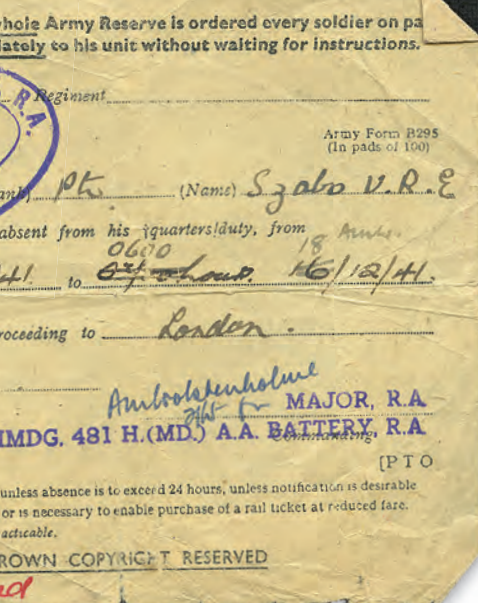 whole Army Reserve is ordered every soldier on pa
lately to his unit without waiting for instructions.
R.A.
Regiment
Army Form B295
(In pads of 100)
ank) Pte (Name) Szabo V.R.E
absent from his ‡quarters/duty, from
0600 18
41. to hours 16/12/41.
roceeding to London.
for MAJOR, R.A
MMDG, 481 H.(MD.) A.A. BATTERY, R.A
Commanding.
[PTO
unless absence is to exceed 24 hours, unless notification is desirable
or is necessary to enable purchase of a rail ticket at reduced fare.
acticable.
ROWN COPYRIGHT RESERVED